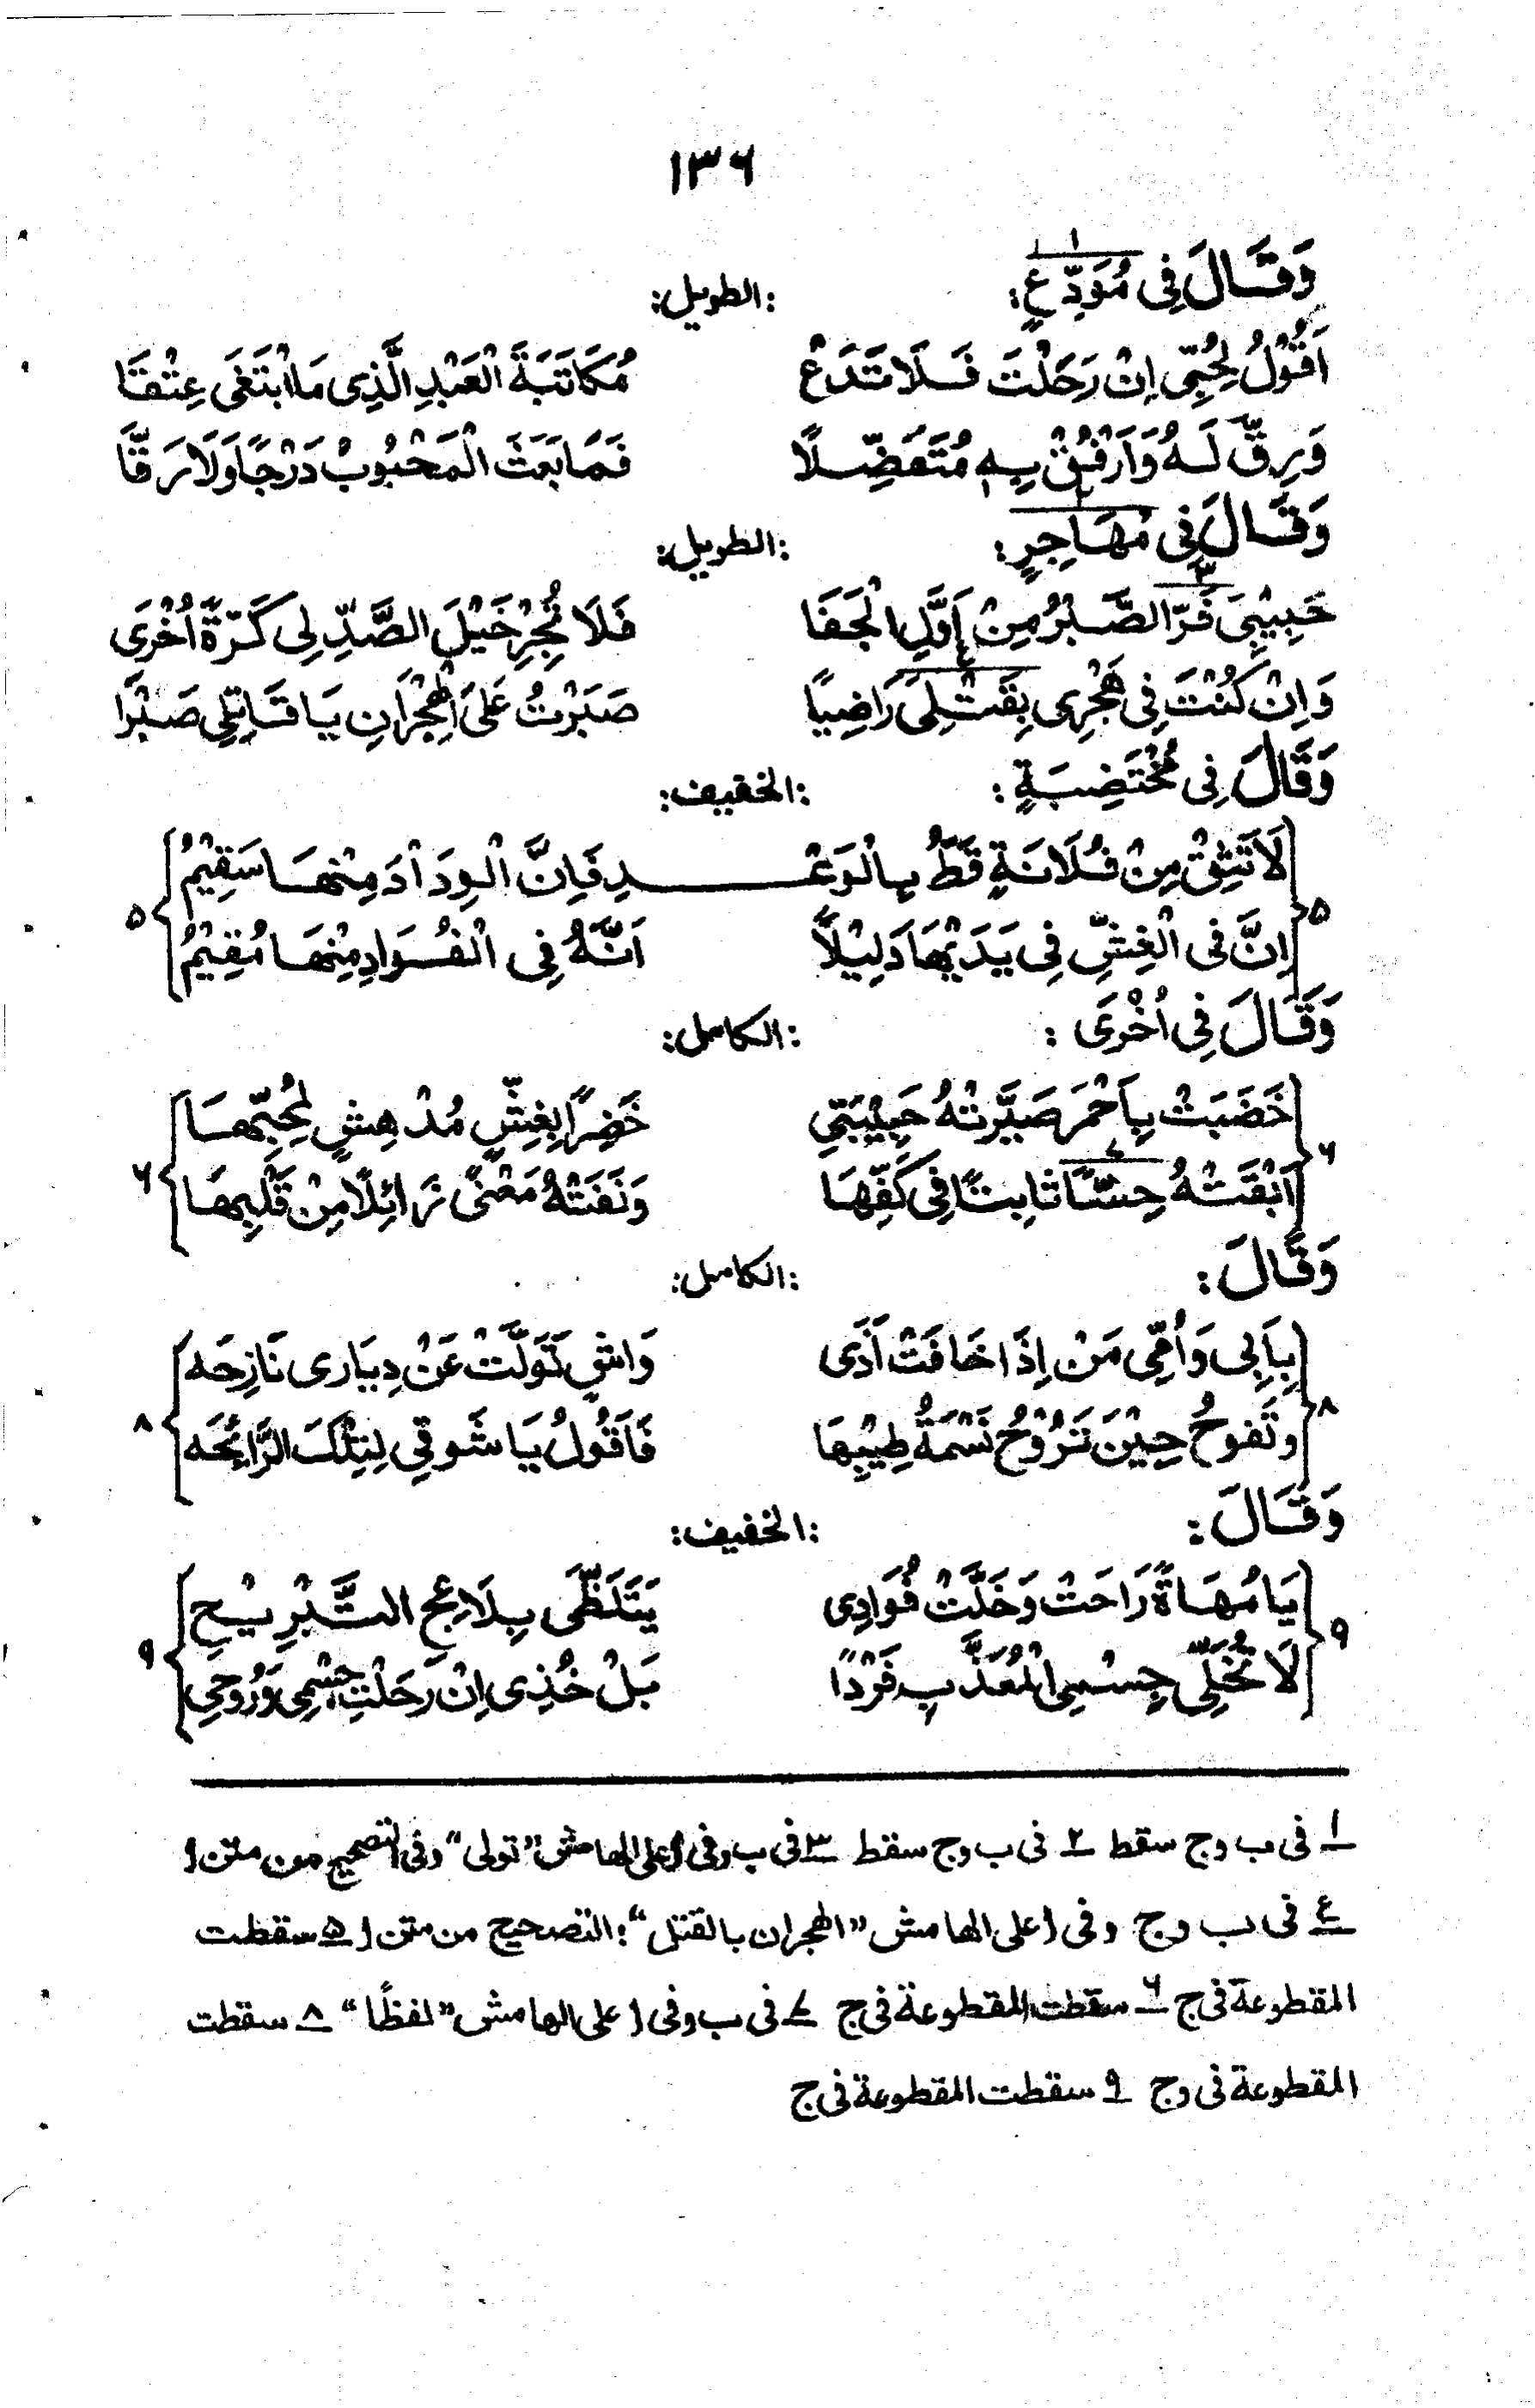 ١٣٦
وَقَالَ فِى مُوَدِّعٍ: ١
:الطويل:
اَقُوْلُ لِحُبِّى اِنْ رَحَلْتَ فَلَا تَدَعْ مُكَاتَبَةَ الْعَبْدِ الَّذِى مَا ابْتَغَى عِتْقَا
وَرِقَّ لَهُ وَارْفُقْ بِهِ مُتَفَضِّلًا فَمَا بَعَثَ الْمَحْبُوبْ دَرْجًا وَلَا رَقَّا
وَقَالَ فِى مُهَاجِرٍ: ٢
:الطويل:
حَبِيْبِىَ فَرَّ الصَّبْرُ مِنْ اَوَّلِ الْجَفَا ٣ فَلَا تُجْرِ خَيْلَ الصَّدِّ لِى كَرَّةً اُخْرَى
وَاِنْ كُنْتَ فِى هَجْرِى بِقَتْلِىَ رَاضِيًا ٤ صَبَرْتُ عَلَى الْهِجْرَانِ يَا قَاتِلِى صَبْرًا
وَقَالَ فِى مُخْتَضِبَةٍ:
:الخفيف:
٥ لَا تَثِقْ مِنْ فُلَانَةٍ قَطُّ بِالْوَعْـ ـدِ فَاِنَّ الْوِدَادَ مِنْهَا سَقِيْمُ ٥
اِنَّ فى الْغِشِّ فِى يَدَيْهَا دَلِيْلاً اَنَّهُ فِى الْفُوَادِ مِنْهَا مُقِيْمُ
وَقَالَ فِى اُخْرَى :
:الكامل:
٦ خَضَبَتْ بِاَحْمَرَ صَيَّرَتْهُ حَبِيْبَتِى خَضِرًا بِغِشٍّ مُدْهِشٍ لِمُحِبِّهَا ٦
اَبْقَتْهُ حِسًّا ثابِتًا فِى كَفِّهَا ٧ وَنَفَتْهُ مَعْنًى زَائِلًا مِنْ قَلْبِهَا
وَقَالَ :
:الكامل:
٨ بِاَبِى وَاُمِّى مَنْ اِذَا خَافَتْ اَذَى وَاشٍ تَوَلَّتْ عَنْ دِيَارى نَازِحَه ٨
وتَفوحُ حِيْنَ تَرُوْحُ نَسْمَةُ طِيْبِهَا فَاَقُولُ يَا شَوقِي لِتِلْكَ الرَّائِحَه
وَقَالَ :
:الخفيف:
٩ يَا مُهَاةً رَاحَتْ وَخَلَّتْ فُوَادِى يَتَلَظّٰى بِلَاعِجِ التَّبْرِيْحِ ٩
لَا تُخَلِّى جِسْمِى الْمُعَذَّبِ فَرْدًا بَلْ خُذِى اِنْ رَحَلْتِ جِسْمِى وَرُوحِى
١ فى ب وج سقط ٢ فى ب وج سقط ٣ فى ب وفى أ على الهامش "تولى" وفى التصحيح من متن أ
٤ فى ب وج وفى أ على الهامش "الهجران بالقتل"؛ التصحيح من متن أ ٥ سقطت
المقطوعة فى ج ٦ سقطت المقطوعة فى ج ٧ فى ب وفى أ على الهامش "لفظًا" ٨ سقطت
المقطوعة فى وج ٩ سقطت المقطوعة فى ج